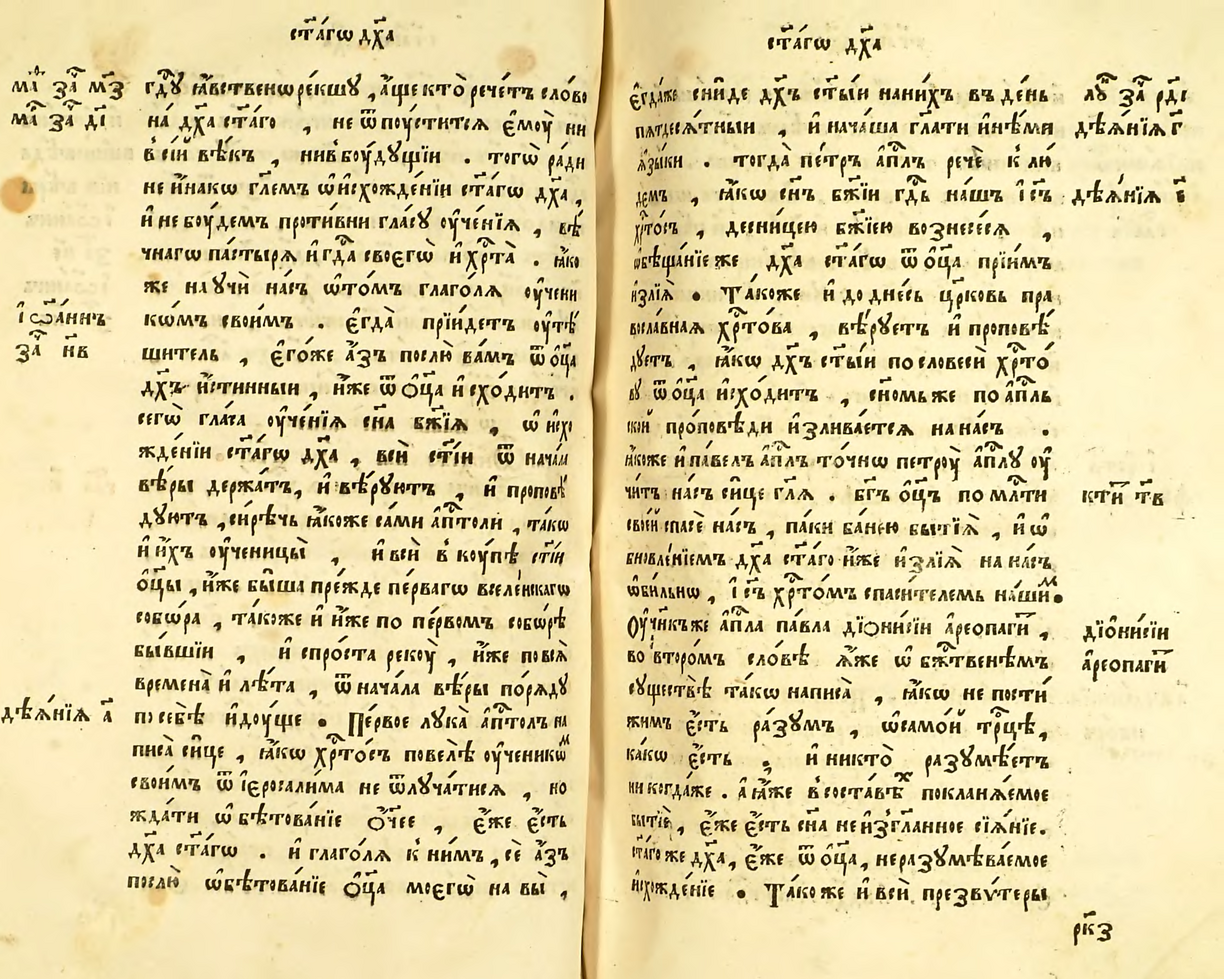 ст҃а́гѡ дх҃а
ма҇ за҇ м҃з
ма҇ за҇ д҃і
гд҇у ꙗ҆́вственѡ ре́кшу , а҆́ще кто̀ рече́тъ сло́во
на̀ дх҃а ст҃а́го , не ѿпоу́стится є҆моу̀ ни
в̾ сі́й вѣ́къ , ни в̾ боу́дущїи . тогѡ̀ ра́ди
не и҆на́кѡ гл҃емъ ѡ҆ и҆схожде́нїи ст҃а́гѡ дх҃а ,
и҆ не боу́демъ проти́вни гла́су оу҆че́нїꙗ , вѣ́
чнагѡ па́стырѧ и҆ гд҇а своегѡ̀ и҆ хр҇та̀ . ꙗ҆́ко
же научи́ на́съ ѡ҆ то́мъ глаго́лѧ оу҆чени
кѡ́мъ свои́мъ . є҆гда̀ прїи́детъ оу҆тѣ́
і҆ѡа́ннъ
за҇ н҃в
шитель , є҆го́же а҆́зъ послю̀ ва́мъ ѿ ѻ҆ц҃а
дх҃ъ и҆́стинныи , и҆́же ѿ ѻ҆ц҃а и҆схо́дитъ .
сегѡ̀ гла́са оу҆че́нїꙗ сн҃а бж҃їѧ , ѡ҆ и҆схо
жде́нїи ст҃а́гѡ дх҃а , всѝ ст҃і́и ѿ нача́ла
вѣ́ры держа́тъ , и҆ вѣ́руютъ , и҆ проповѣ́
дуютъ , си́рѣчь ꙗ҆́коже са́ми а҆п҇толи , та́кѡ
и҆ и҆́хъ оу҆ченицы̀ , и҆ всѝ в̾коу́пѣ ст҃і́и
ѻ҆ц҃ы , и҆́же бы́ша пре́жде пе́рвагѡ вселе́нскагѡ
собѡ́ра , та́коже и҆ и҆́же по пе́рвомъ собѡ́рѣ
бы́вшїи , и҆ спро́ста рекоу̀ , и҆́же по всѧ̀
времена̀ и҆ лѣ́та , ѿ нача́ла вѣ́ры по рѧ́ду
дѣѧ́нїѧ а҃
по себѣ̀ и҆доу́ще . Пе́рвое лука̀ а҆п҇толъ на
писа̀ си́це , ꙗ҆́кѡ хр҇то́съ повелѣ̀ оу҆ченикѡ́м
свои́мъ ѿ і҆еросали́ма не ѿлуча́тисѧ , но
жда́ти ѡ҆бѣтова́нїе ѻ҆́ч҃ее , є҆́же є҆́сть
дх҃а ст҃а́гѡ . и҆ глаго́лѧ к̾ ни́мъ , сѐ а҆́зъ
послю̀ ѡ҆бѣтова́нїе ѻ҆ц҃а моегѡ̀ на вы̀ ,
ст҃а́гѡ дх҃а
є҆гда́же сни́де дх҃ъ ст҃ы́и на ни́хъ въ де́нь
лу҇ за҇ рд҃і
пѧтдесѧ́тныи , и҆ нача́ша гл҃ати и҆нѣ́ми
дѣѧ́нїѧ г҃
ꙗ҆зы́ки . тогда̀ пе́тръ а҆п҇лъ речѐ к̾ лю́
демъ , ꙗ҆́кѡ сн҃ъ бж҃їи гд҇ь на́шъ і҆с҃ъ
дѣѧ́нїѧ
хр҇то́съ , десни́цею бж҃їею вознесе́сѧ ,
ѡ҆бѣща́нїе же дх҃а ст҃а́гѡ ѿ ѻ҆ц҃а прїи́мъ
и҆злїѧ̀ . Та́коже и҆ до дне́сь цр҃ковь пра
восла́внаѧ хр҇то́ва , вѣ́руетъ и҆ проповѣ́
дуетъ , ꙗ҆́кѡ дх҃ъ ст҃ы́и по словесѝ хр҇то́
ву ѿ ѻ҆ц҃а и҆схо́дитъ , сн҃омъ же по а҆п҇ль
ской про́повѣди и҆злива́етсѧ на на́съ .
ꙗ҆́коже и҆ па́велъ а҆п҇лъ то́чнѡ петроу̀ а҆п҇лу оу҆
чи́тъ на́съ си́це гл҃ѧ . бг҃ъ ѻ҆ц҃ъ по мл҇ти
кти́ т҃в
свое́й спасѐ на́съ , па́ки ба́нею бытїѧ̀ , и҆ ѡ҆
бновле́нїемъ дх҃а ст҃а́го и҆́же и҆злїѧ̀ на на́съ
ѡ҆би́льнѡ , і҆с҃ъ хр҇то́мъ спаси́телемъ на́шим .
Оу҆чн҃къ же а҆п҇ла па́вла дїони́сїи а҆реопаги́ ,
дїѻни́сїи
а҆реопаги́
во второ́мъ сло́вѣ ꙗ҆́же ѡ҆ бж҇твенѣмъ
существѣ̀ та́кѡ написа̀ , ꙗ҆́кѡ не пости́
жимъ є҆́сть ра́зумъ , ѡ҆ само́й тр҇цѣ ,
ка́кѡ є҆́сть , и҆ никто̀ разумѣ́етъ
никогда́же . а҆ ꙗ҆́же в̾ соста́вѣх покланѧ́емое
бытїѐ , є҆́же є҆́сть сн҃а неи҆згл҃анное сїѧ́нїе .
ст҃а́го же дх҃а , є҆́же ѿ ѻ҆ц҃а , неразумѣва́емое
и҆схожде́нїе . Та́коже и҆ всѝ презвѵ́теры
рк҃з